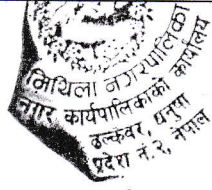 मिथिला नगरपालिका
नगर कार्यपालिकाको कार्यालय
ढल्केवर, धनुषा
प्रदेश नं. २, नेपाल